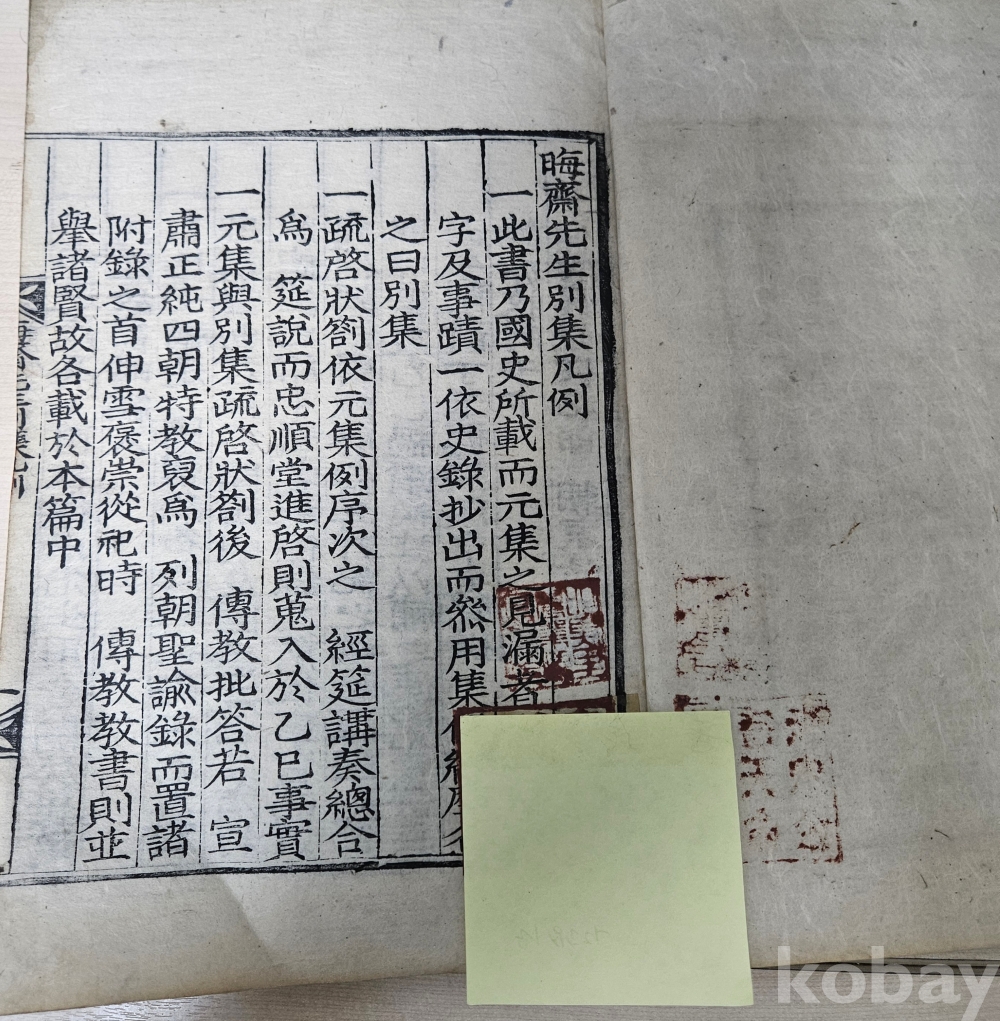 晦齋先生別集凡例
一此書乃國史所載而元集之見漏者
字及事蹟一依史錄抄出而然用集
之曰別集
一疏啓狀劄依元集例序次之 經筵講奏總合
爲 筵說而忠順堂進啓則蒐入於乙巳事實
一元集與別集疏啓狀劄後 傳教批答若 宣
肅正純四朝特教裒爲 列朝聖諭錄而置諸
附錄之首伸雪褒崇從祀時 傳教教書則並
擧諸賢故各載於本篇中
kobay